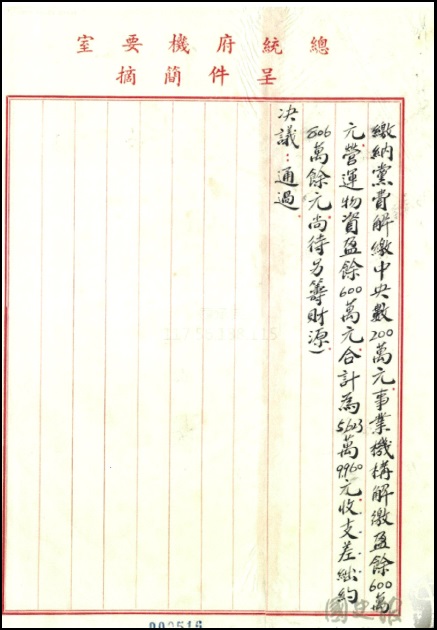 總統府機要室
呈件簡摘
繳納黨費解繳中央數200萬元事業機構解繳盈餘600萬
元營運物資盈餘600萬元合計為5623萬9960元收支差絀約
606萬餘元尚待另籌財源）
決議：通過
002516